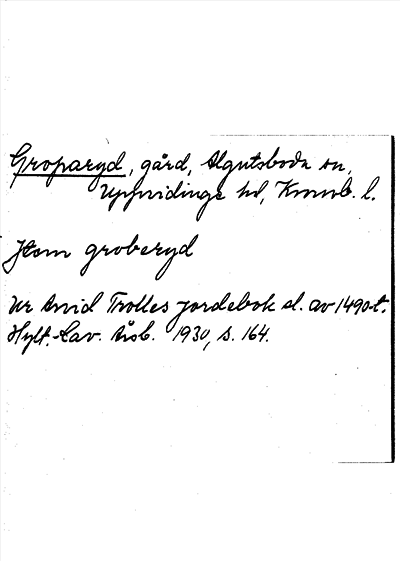 Groparyd, gård, Algutsboda sn,
Uppvidinge hd, Kronob. l.
Item groberyd
Ur Arvid Trolles jordebok sl. av 1490-t.
Hylt.-Cav. Årsb. 1930, s. 164.